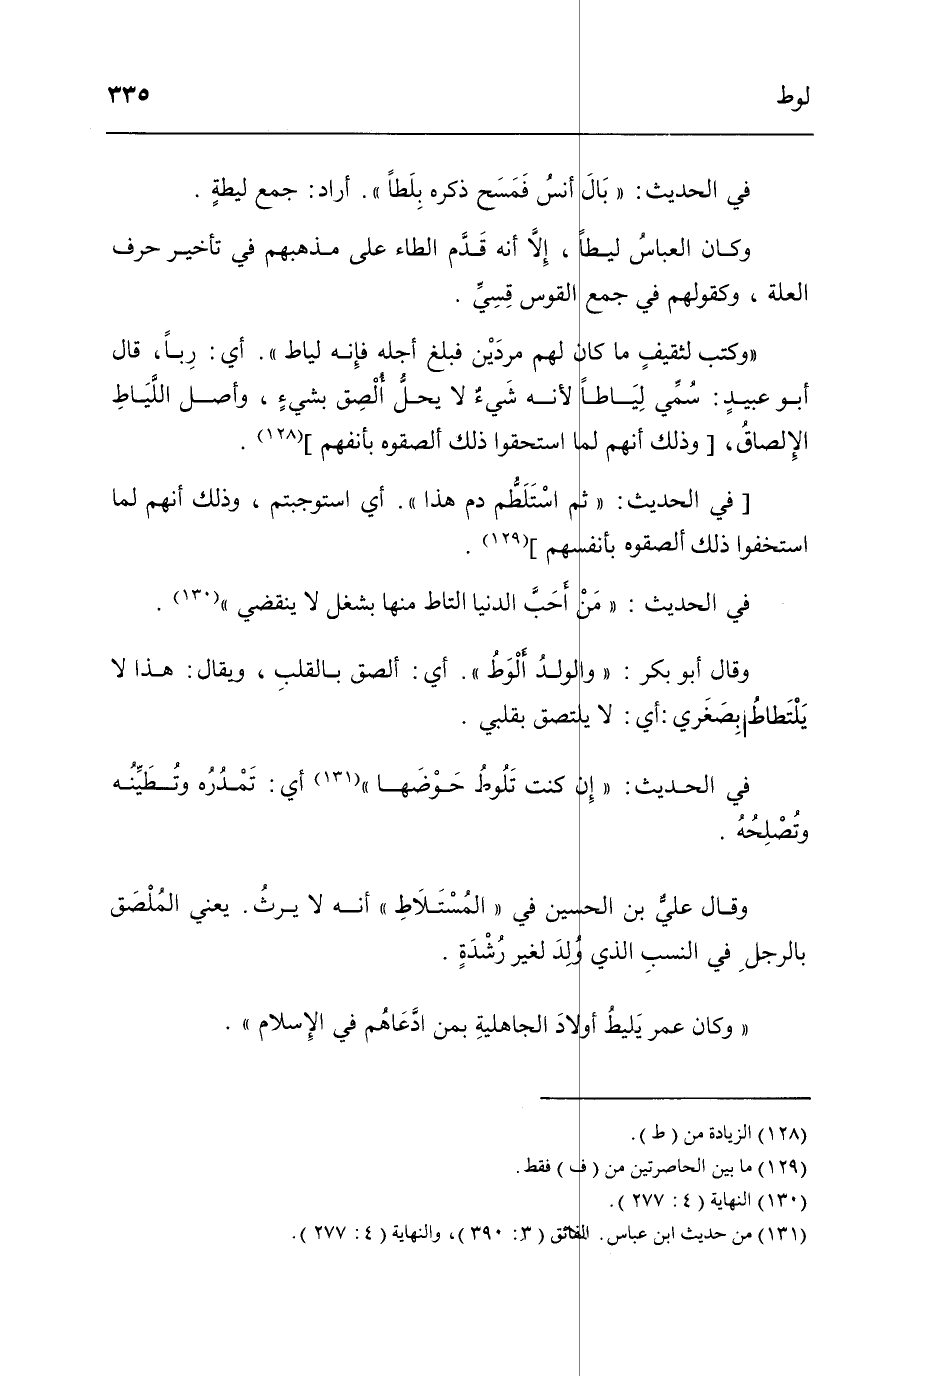 لوط
٣٣٥
في الحديث: « بَالَ أنسُ فَمَسَح ذكره بِلَطاً ». أراد: جمع ليطةٍ .
وكان العباسُ ليطاً ، إِلَّا أنه قَدَّم الطاء على مذهبهم في تأخير حرف
العلة ، وكقولهم في جمع القوس قِسِيِّ .
«وكتب لثقيفٍ ما كان لهم مردَيْن فبلغ أجله فإِنه لياط ». أي: رِباً، قال
أبو عبيدٍ: سُمِّي لِيَاطاً لأنه شَيءٌ لا يحلُّ أُلْصِق بشيءٍ ، وأصل اللَّيَاطِ
الإِلصاقُ، [ وذلك أنهم لما استحقوا ذلك ألصقوه بأنفهم ](١٢٨) .
[ في الحديث: « ثم اسْتَلَطُّم دم هذا ». أي استوجبتم ، وذلك أنهم لما
استخفوا ذلك ألصقوه بأنفسهم ](١٢٩) .
في الحديث : « مَنْ أَحَبَّ الدنيا التاط منها بشغل لا ينقضي »(١٣٠) .
وقال أبو بكر : « والولدُ أَلْوَطُ ». أي: ألصق بالقلبِ ، ويقال: هذا لا
يَلْتَطاطُ بِصَغَري :أي: لا يلتصق بقلبي .
في الحديث: « إِن كنت تَلُوطُ حَوْضَها »(١٣١) أي: تَمْدُرُه وتُطَيِّنُه
وتُصْلِحُهُ .
وقال عليُّ بن الحسين في « المُسْتَلَاطِ » أنه لا يرثُ. يعني المُلْصَق
بالرجلِ في النسبِ الذي وُلِدَ لغير رُشْدَةٍ .
« وكان عمر يَليطُ أولادَ الجاهليةِ بمن ادَّعَاهُم في الإِسلام » .
(١٢٨) الزيادة من ( ط ).
(١٢٩) ما بين الحاصرتين من ( ف ) فقط.
(١٣٠) النهاية ( ٤ : ٢٧٧ ).
(١٣١) من حديث ابن عباس. الفائق ( ٣: ٣٩٠ )، والنهاية ( ٤: ٢٧٧ ).